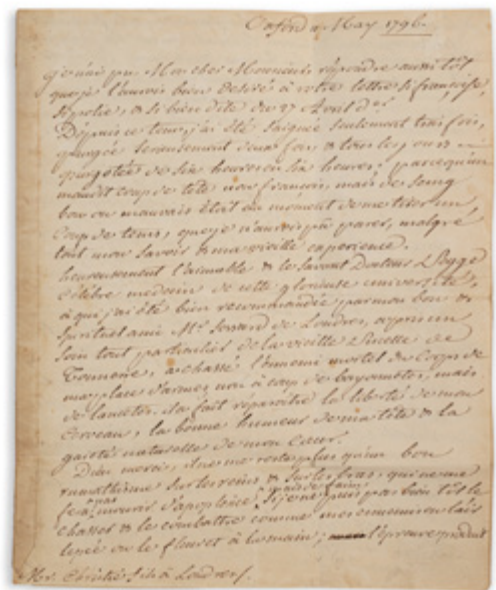 Oxford May 1796.
je n'ai pu Mon cher Monsieur répondre aussitôt
que je l'aurois bien désiré à votre lettre si françoise,
si polie, & si bien dite du 27 Avril dr
Depuis ce tems, j'ai été saignée seulement trois fois,
purgée serieusement deux fois, & tous les
de six heures en six heures, parcequ'un
maudit coup de tête non françois, mais de sang
bon ou mauvais était au moment de me tirer un
coup de tems, que je n'aurois pu parer, malgré
tout mon savoir & ma vieille experience.
heureusement l'aimable & le savant Docteur
célèbre medecin de cette glorieuse université,
à qui j'ai été bien recommandée par mon bon &
spirituel ami Mr. de Londres, a pris un
soin tout particulier de la vieille Pucelle de
Tonnerre, a chassé l'ennemi mortel du corps de
ma place d'armes, non à coup de bayonettes, mais
de lancettes. il a fait réparoitre la liberté de mon
cerveau, la bonne humeur de ma tête & la
gaieté naturelle de mon coeur.
Dieu merci, il ne me reste plus qu'un bon
rumathisme sur les reins & sur les bras, qui ne me
fera pas mourir d'apoplexie, si je ne puis pas bientôt le
chasser & le combattre comme mes ennemis
l'épée ou le fleuret à la main; l'épreuve produit
Mr. Christie fils à Londres.